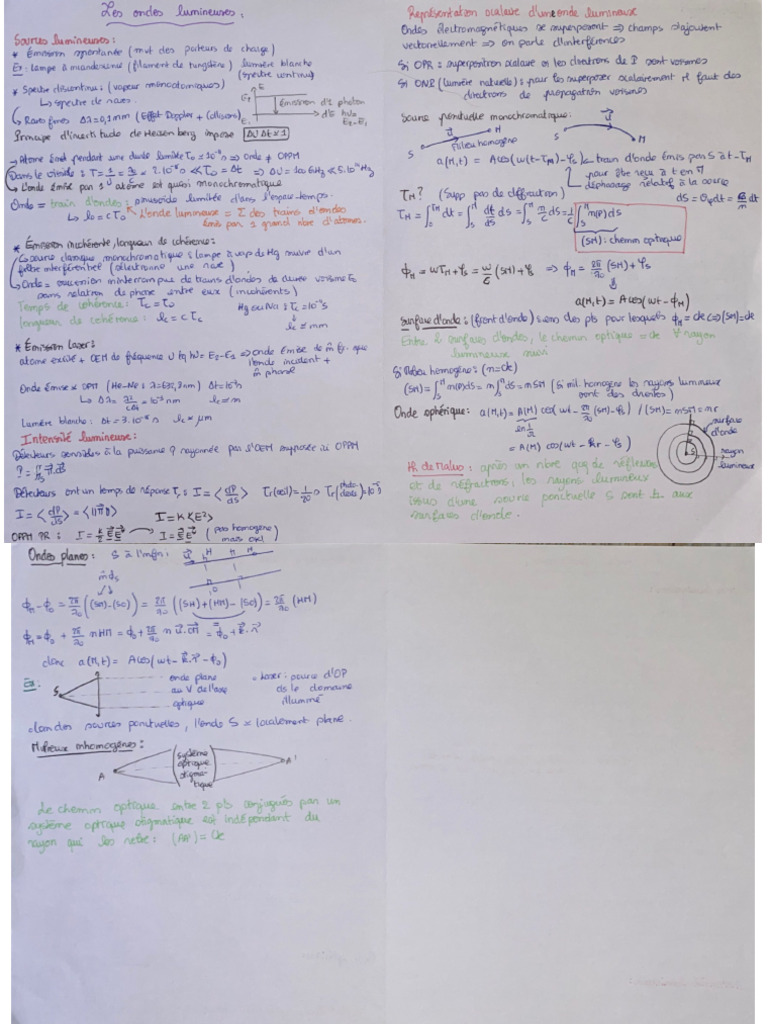 Les ondes lumineuses:
Sources lumineuses:
* Émission spontanée (mvt des porteurs de charge)
Ex: Lampe à incandescence (filament de tungstène) lumière blanche
(spectre continu)
* Spectre discontinu: (vapeur monoatomique)
↳ spectre de raies.
E
E2
Émission d'1 photon
d'E hν0
E1
E2-E1
↳ Raies fines Δλ=0,1nm (Effet Doppler + collisions)
Principe d'incertitude de Heisenberg impose ΔνΔt≈1
→ Atome émet pendant une durée limitée τ0=10⁻⁸s ⟹ Onde ≠ OPPM
Dans le visible: T = 1/ν = λ0/c = 2.10⁻¹⁵s << τ0 = Δt ⟹ Δν = 100 MHz << 5.10¹⁴Hz
↳ L'onde émise par 1 atome est quasi monochromatique
Onde = train d'ondes: sinusoïde limitée dans l'espace-temps.
↳ lc = cτ0 L'onde lumineuse = Σ des trains d'ondes
émis par 1 grand nbre d'atomes.
* Émission incohérente, longueur de cohérence:
↳ source classique monochromatique: lampe à vap de Hg suivie d'un
filtre interférentiel (sélectionne une raie)
↳ Onde = succession ininterrompue de trains d'ondes de durée voisine τ0
sans relation de phase entre eux (incohérents)
Temps de cohérence: τc = τ0
Hg ou Na: τc = 10⁻¹¹s
longueur de cohérence: lc = c τc
↳ lc ≈ mm
* Émission laser:
atome excité + OEM de fréquence ν tq hν = E2-E1 ↪ onde émise de m̂ fq. que
l'onde incidente +
m̂ phase
Onde émise ≈ OPM (He-Ne: λ=632,8nm) Δt=10⁻⁸h
lc ≈ m
Lumière blanche: Δt = 3.10⁻¹⁵s lc ≈ μm
Intensité lumineuse:
Détecteurs sensibles à la puissance P rayonnée par l'OEM supposée ici OPPM
Détecteurs ont un temps de réponse Tr: I = <dP/dS> Tr(œil)=1/20 s Tr(photodiode)=10⁻⁶s
I = <dP/dS> = <||Π||>
I = K<E²>
OPPM PR: I = K/2 E E* → I = E E* (pas homogène
mais OK!)
Représentation scalaire d'une onde lumineuse
Ondes électromagnétiques se superposent ⟹ champs s'ajoutent
vectoriellement ⟹ on parle d'interférences
Si OPR: superposition scalaire si les directions de E sont voisines
Si ONP (lumière naturelle): pour les superposer scalairement il faut des
directions de propagation voisines
Source ponctuelle monochromatique:
u
S
M
milieu homogène
u
S
M
a(M,t) = A cos(w(t-τM)-φs) ↳ train d'onde émis par S à t-τM
pour être reçu à t en M
déphasage relatif à la source
τM? (Supp pas de diffraction)
ds = vφdt = c/n dt
τM = ∫dt = ∫ dt/ds ds = ∫ n/c ds = 1/c ∫ n(P)ds
(SM): chemin optique
φM = wτM+φs = w/c (SM) + φs ⟹ φM = 2π/λ0 (SM) + φs
a(M,t) = A cos(wt - φM)
Surface d'onde: (front d'onde): ens des pts pour lesquels φM = cte ⟺ (SM) = cte
Entre 2 surfaces d'ondes, le chemin optique = cte ∀ rayon
lumineux suivi
Si Milieu homogène: (n=cte)
(SM) = ∫ n(P)ds = n∫ds = nSM (Si mil. homogène les rayons lumineux
sont des droites)
Onde sphérique: a(M,t) = A(M) cos(wt - 2π/λ0 (SM) - φs) / (SM) = nSM = nr
en 1/r
= A(M) cos(wt - kr - φs)
S
surface
d'onde
rayon
lumineux
Th de Malus: après un nbre qcq de réflexions
et de réfractions, les rayons lumineux
issus d'une source ponctuelle S sont ⊥ aux
surfaces d'onde.
Ondes planes: S à l'infini:
u
H
M
O
m̂ ds
φM - φ0 = 2π/λ0 ((SM)-(SO)) = 2π/λ0 ((SH)+(HM)-(SO)) = 2π/λ0 (HM)
φM = φ0 + 2π/λ0 nHM = φ0 + 2π/λ0 n u.OM = φ0 + k.r
donc a(M,t) = A cos(wt - k.r - φ0)
Ex:
S
onde plane
au V de l'axe
optique
- Laser: source d'OP
ds le domaine
illuminé
- loin des sources ponctuelles, l'onde S ≈ localement plane.
Milieux inhomogènes:
A
système
optique
stigma-
tique
A'
Le chemin optique entre 2 pts conjugués par un
système optique stigmatique est indépendant du
rayon qui les relie: (AA') = cte